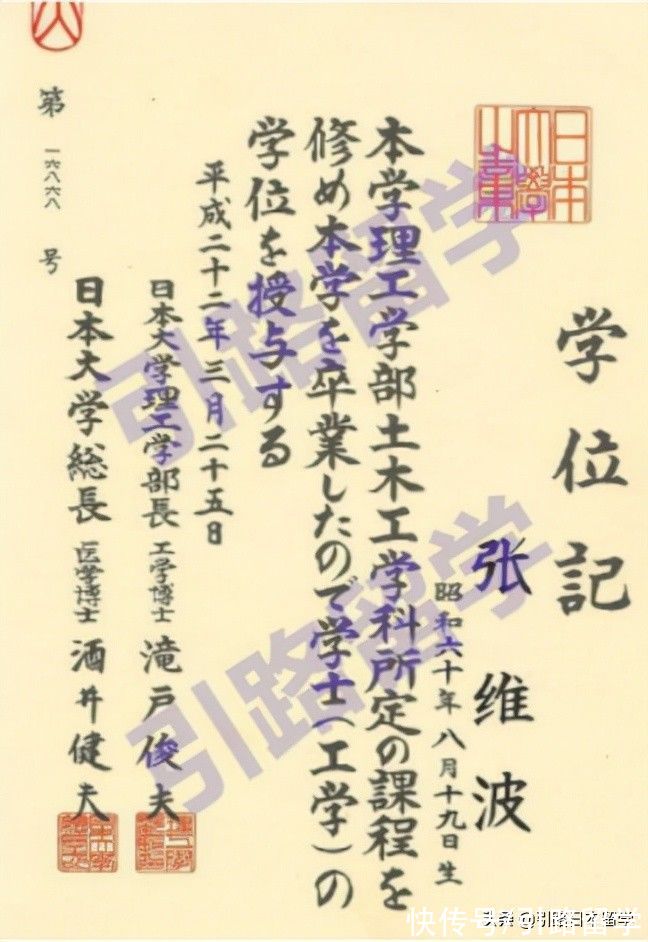 学位記
张维波
昭和六十年八月十九日生
本学理工学部土木工学科所定の課程を
修め本学を卒業したので学士(工学)の
学位を授与する
平成二十二年三月二十五日
日本大学理工学部長 工学博士 滝戸俊夫
日本大学総長 医学博士 酒井健夫
第一六八六八号
日本大學之章
引路留学
引路留学
快传号/引路留学
头条 @引路日本留学